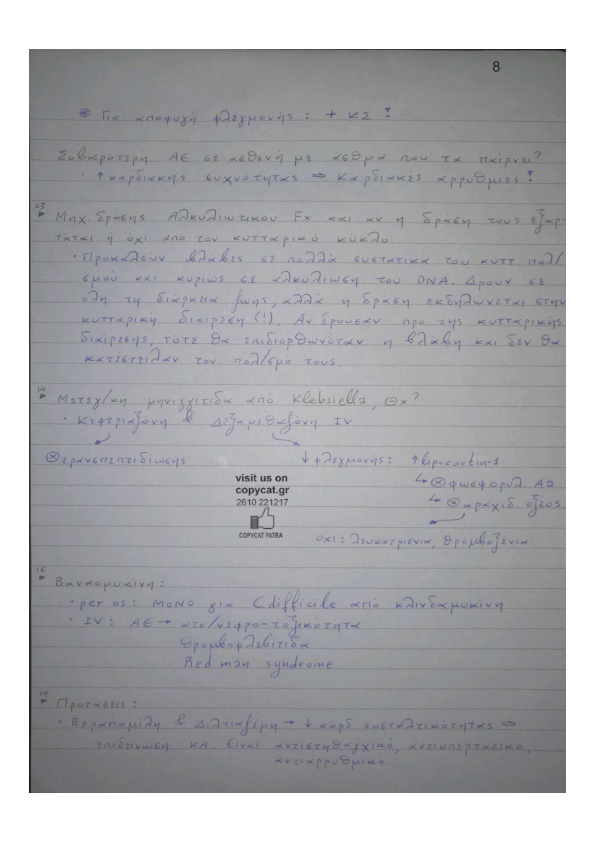 8
⊛ Για αποφυγή φλεγμονής : + ΚΣ !
Σοβαρότερη ΑΕ σε ασθενή με άσθμα που τα παίρνει?
· ↑ καρδιακής συχνότητας ⇒ Καρδιακές αρρυθμίες !
13
Μηχ. δράσης Αλκυλιωτικού Fx και αν η δράση τους εξαρ-
τάται ή όχι από τον κυτταρικό κύκλο.
· Προκαλούν βλάβες σε πολλά συστατικά του κυττ. πολ/
σμού και κυρίως σε αλκυλίωση του DNA. Δρουν σε
όλη τη διάρκεια ζωής, αλλά η δράση εκδηλώνεται στην
κυτταρική διαίρεση (!). Αν δρούσαν προ της κυτταρικής
διαίρεσης, τότε θα επιδιορθωνόταν η βλάβη και δεν θα
κατέστειλαν τον πολ/σμό τους.
14
Μετεγ/κη μηνιγγίτιδα από Klebsiella, Θx?
· Κεφτριαξόνη & Δεξαμεθαζόνη IV
⊗ τρανσπεπτιδίωσης ↓ φλεγμονής : ↑ lipocortin-1
↳ ⊗ φωσφορυλ. Α2
↳ ⊗ αραχιδ. οξέος
όχι : λευκοτριένια, θρομβοξένια.
visit us on
copycat.gr
2610 221217
COPYCAT PATRA
16
Βανκομυκίνη :
· per os : ΜΟΝΟ για C difficile από κλινδαμυκίνη
· IV : ΑΕ → ωτο/νεφρο-τοξικότητα
Θρομβοφλεβίτιδα
Red man syndrome
19
Προτάσεις :
· Βεραπαμίλη & Διλτιαζέμη → ↓ καρδ. συσταλτικότητας ⇒
επιδείνωση ΚΑ. Είναι αντιστηθαγχικό, αντιυπερτασικό,
αντιαρρυθμικό.